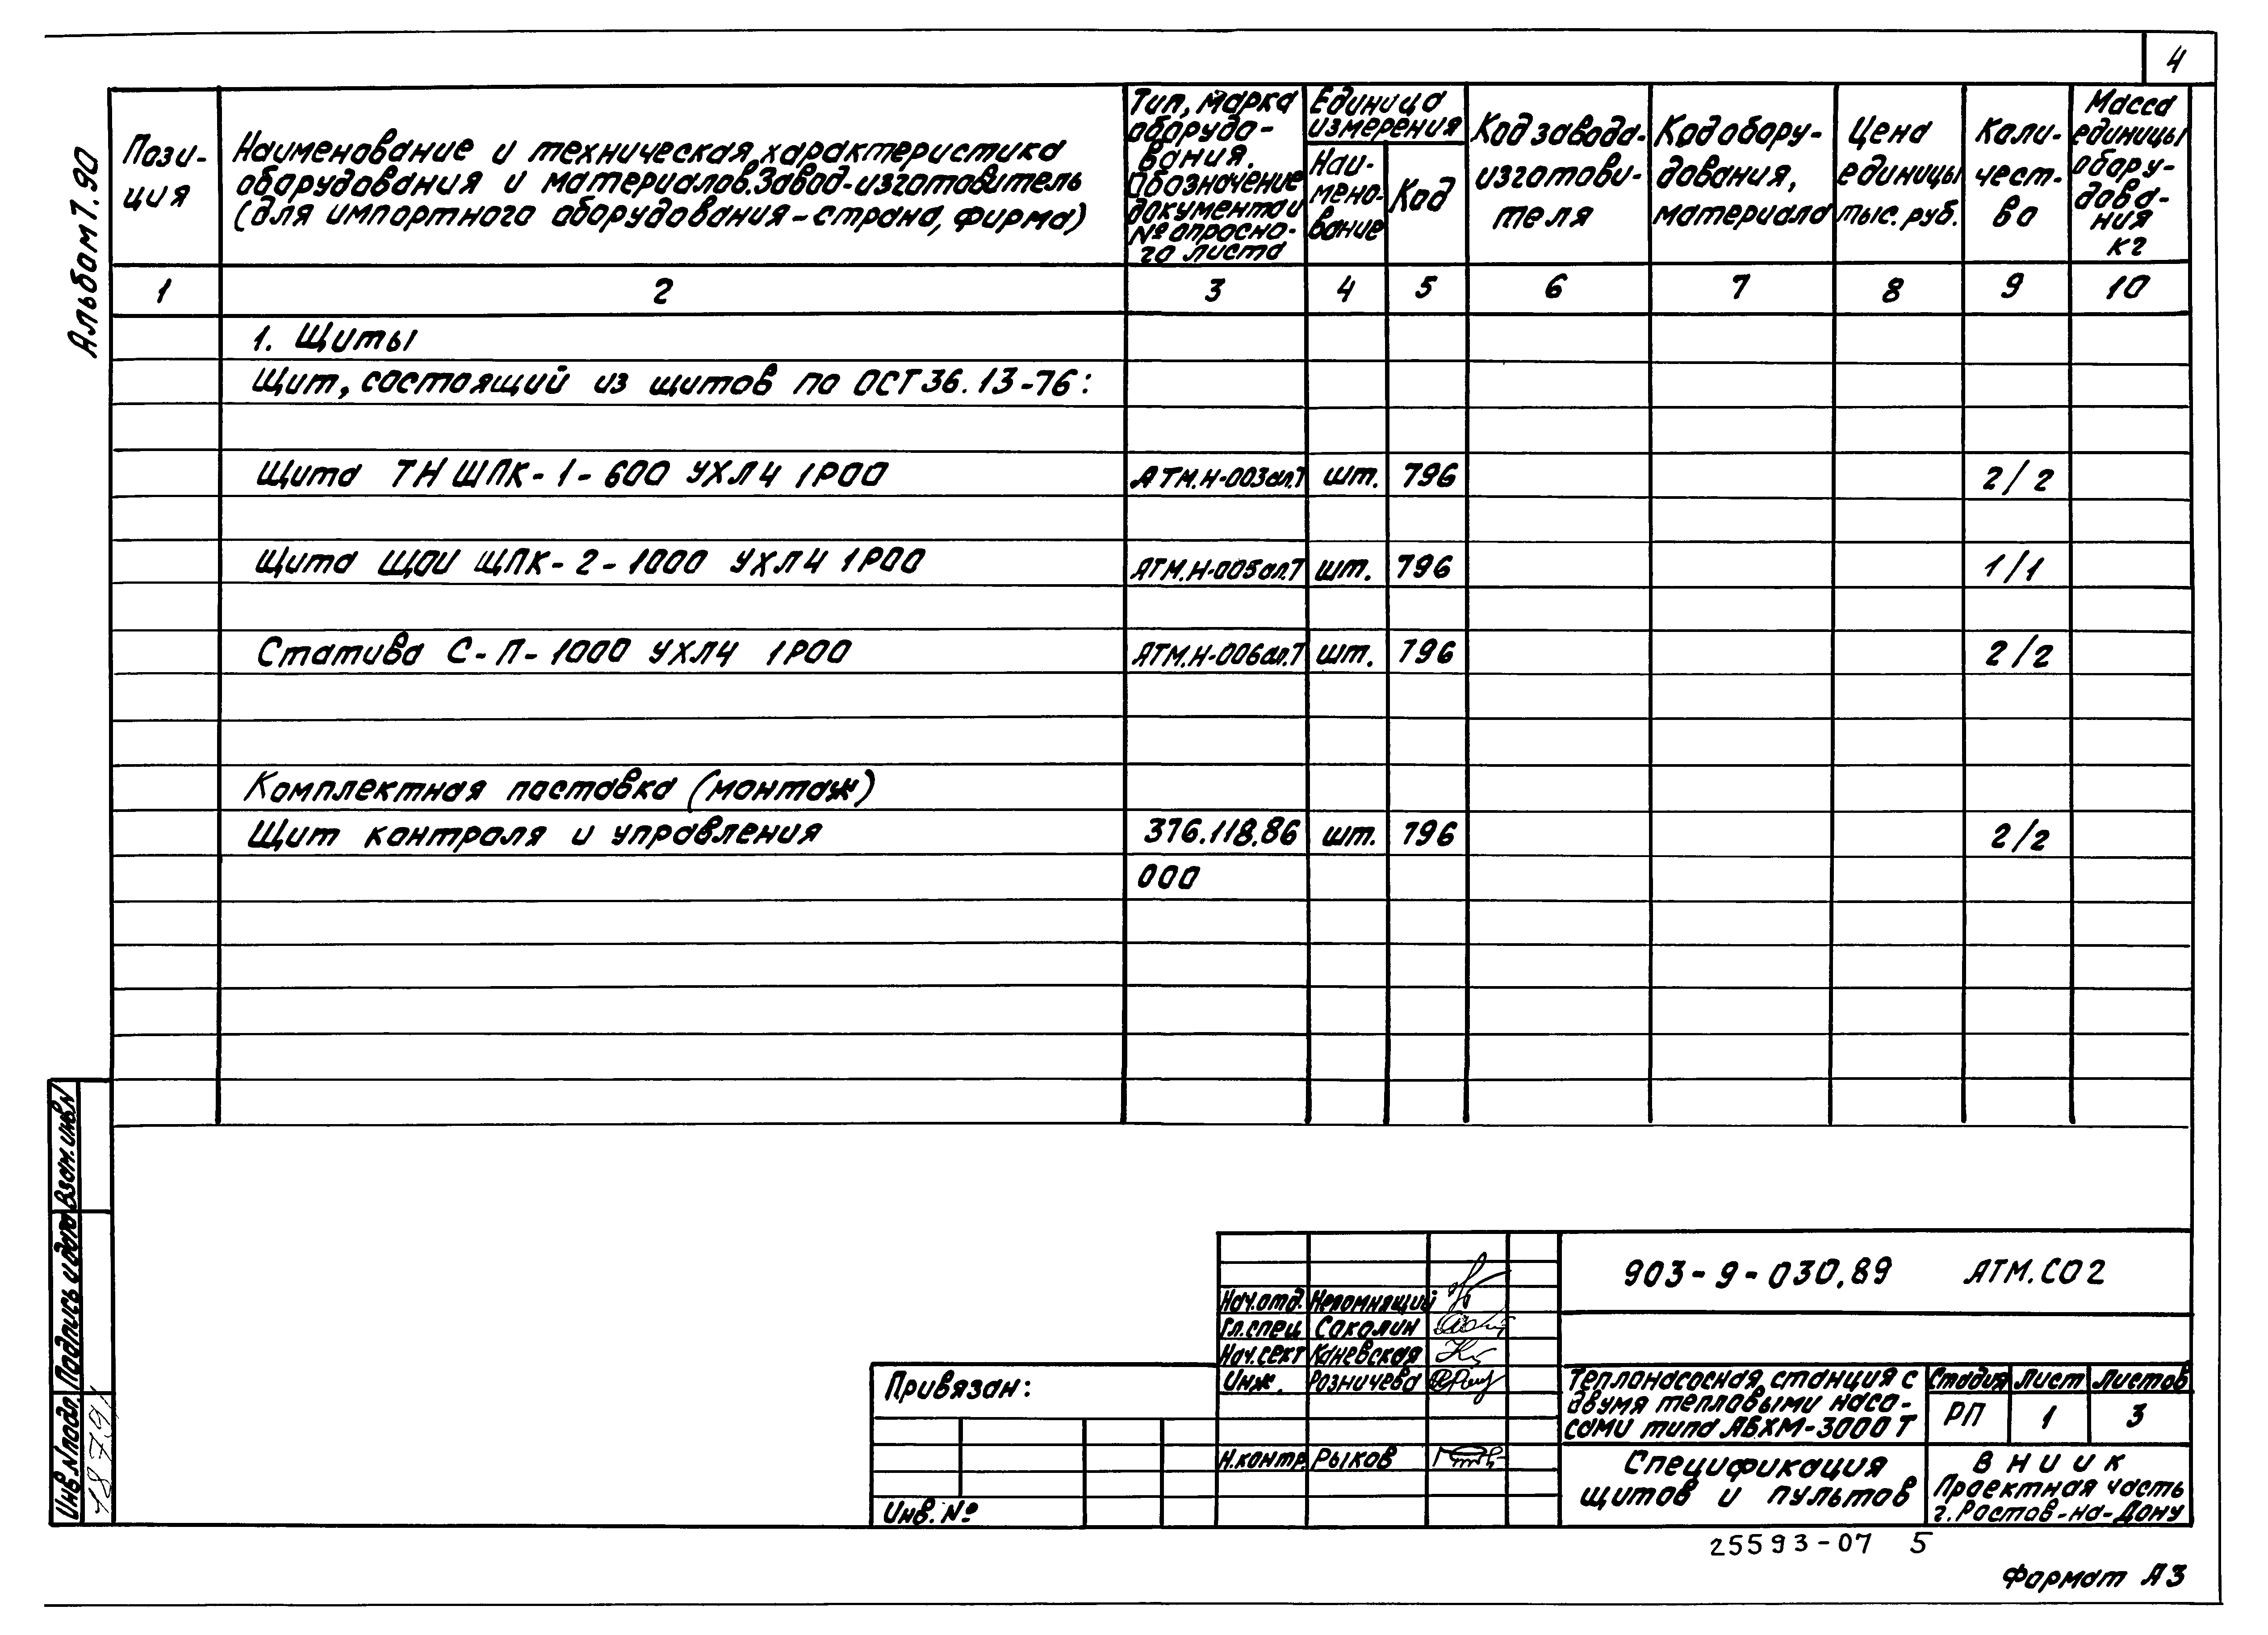 4
Альбом 7.90
Пози-
ция
Наименование и техническая характеристика
оборудования и материалов. Завод-изготовитель
(для импортного оборудования-страна, фирма)
Тип, марка
оборудо-
вания.
Обозначение
документа и
№ опросно-
го листа
Единица
измерения
Наи-
мено-
вание
Код
Код завода-
изготови-
теля
Код обору-
дования,
материала
Цена
единицы
тыс. руб.
Коли-
чест-
во
Масса
единицы
обору-
дова-
ния
кг
1 2 3 4 5 6 7 8 9 10
1. Щиты
Щит, состоящий из щитов по ОСТ 36.13-76:
Щита ТН ШПК-1-600 УХЛ4 1Р00 АТМ.Н-003ал.7 шт. 796 2/2
Щита ЩОИ ЩПК-2-1000 УХЛ4 1Р00 АТМ.Н-005ал.7 шт. 796 1/1
Статива С-П-1000 УХЛ4 1Р00 АТМ.Н-006ал.7 шт. 796 2/2
Комплектная поставка (монтаж)
Щит контроля и управления 376.118.86 шт. 796 2/2
000
Взам. инв.N
Подпись и дата
Инв.N подл.
18791
903-9-030.89 АТМ.СО2
Нач.отд. Непомнящий
Гл.спец. Соколин
Нач.сект Каневская
Инж. Розничева
Н.контр. Рыков
Привязан:
Инв. №
Теплонасосная станция с
двумя тепловыми насо-
сами типа АБХМ-3000 Т
Стадия Лист Листов
РП 1 3
Спецификация
щитов и пультов
ВНИИК
Проектная часть
г. Ростов-на-Дону
25593-07 5
Формат А3